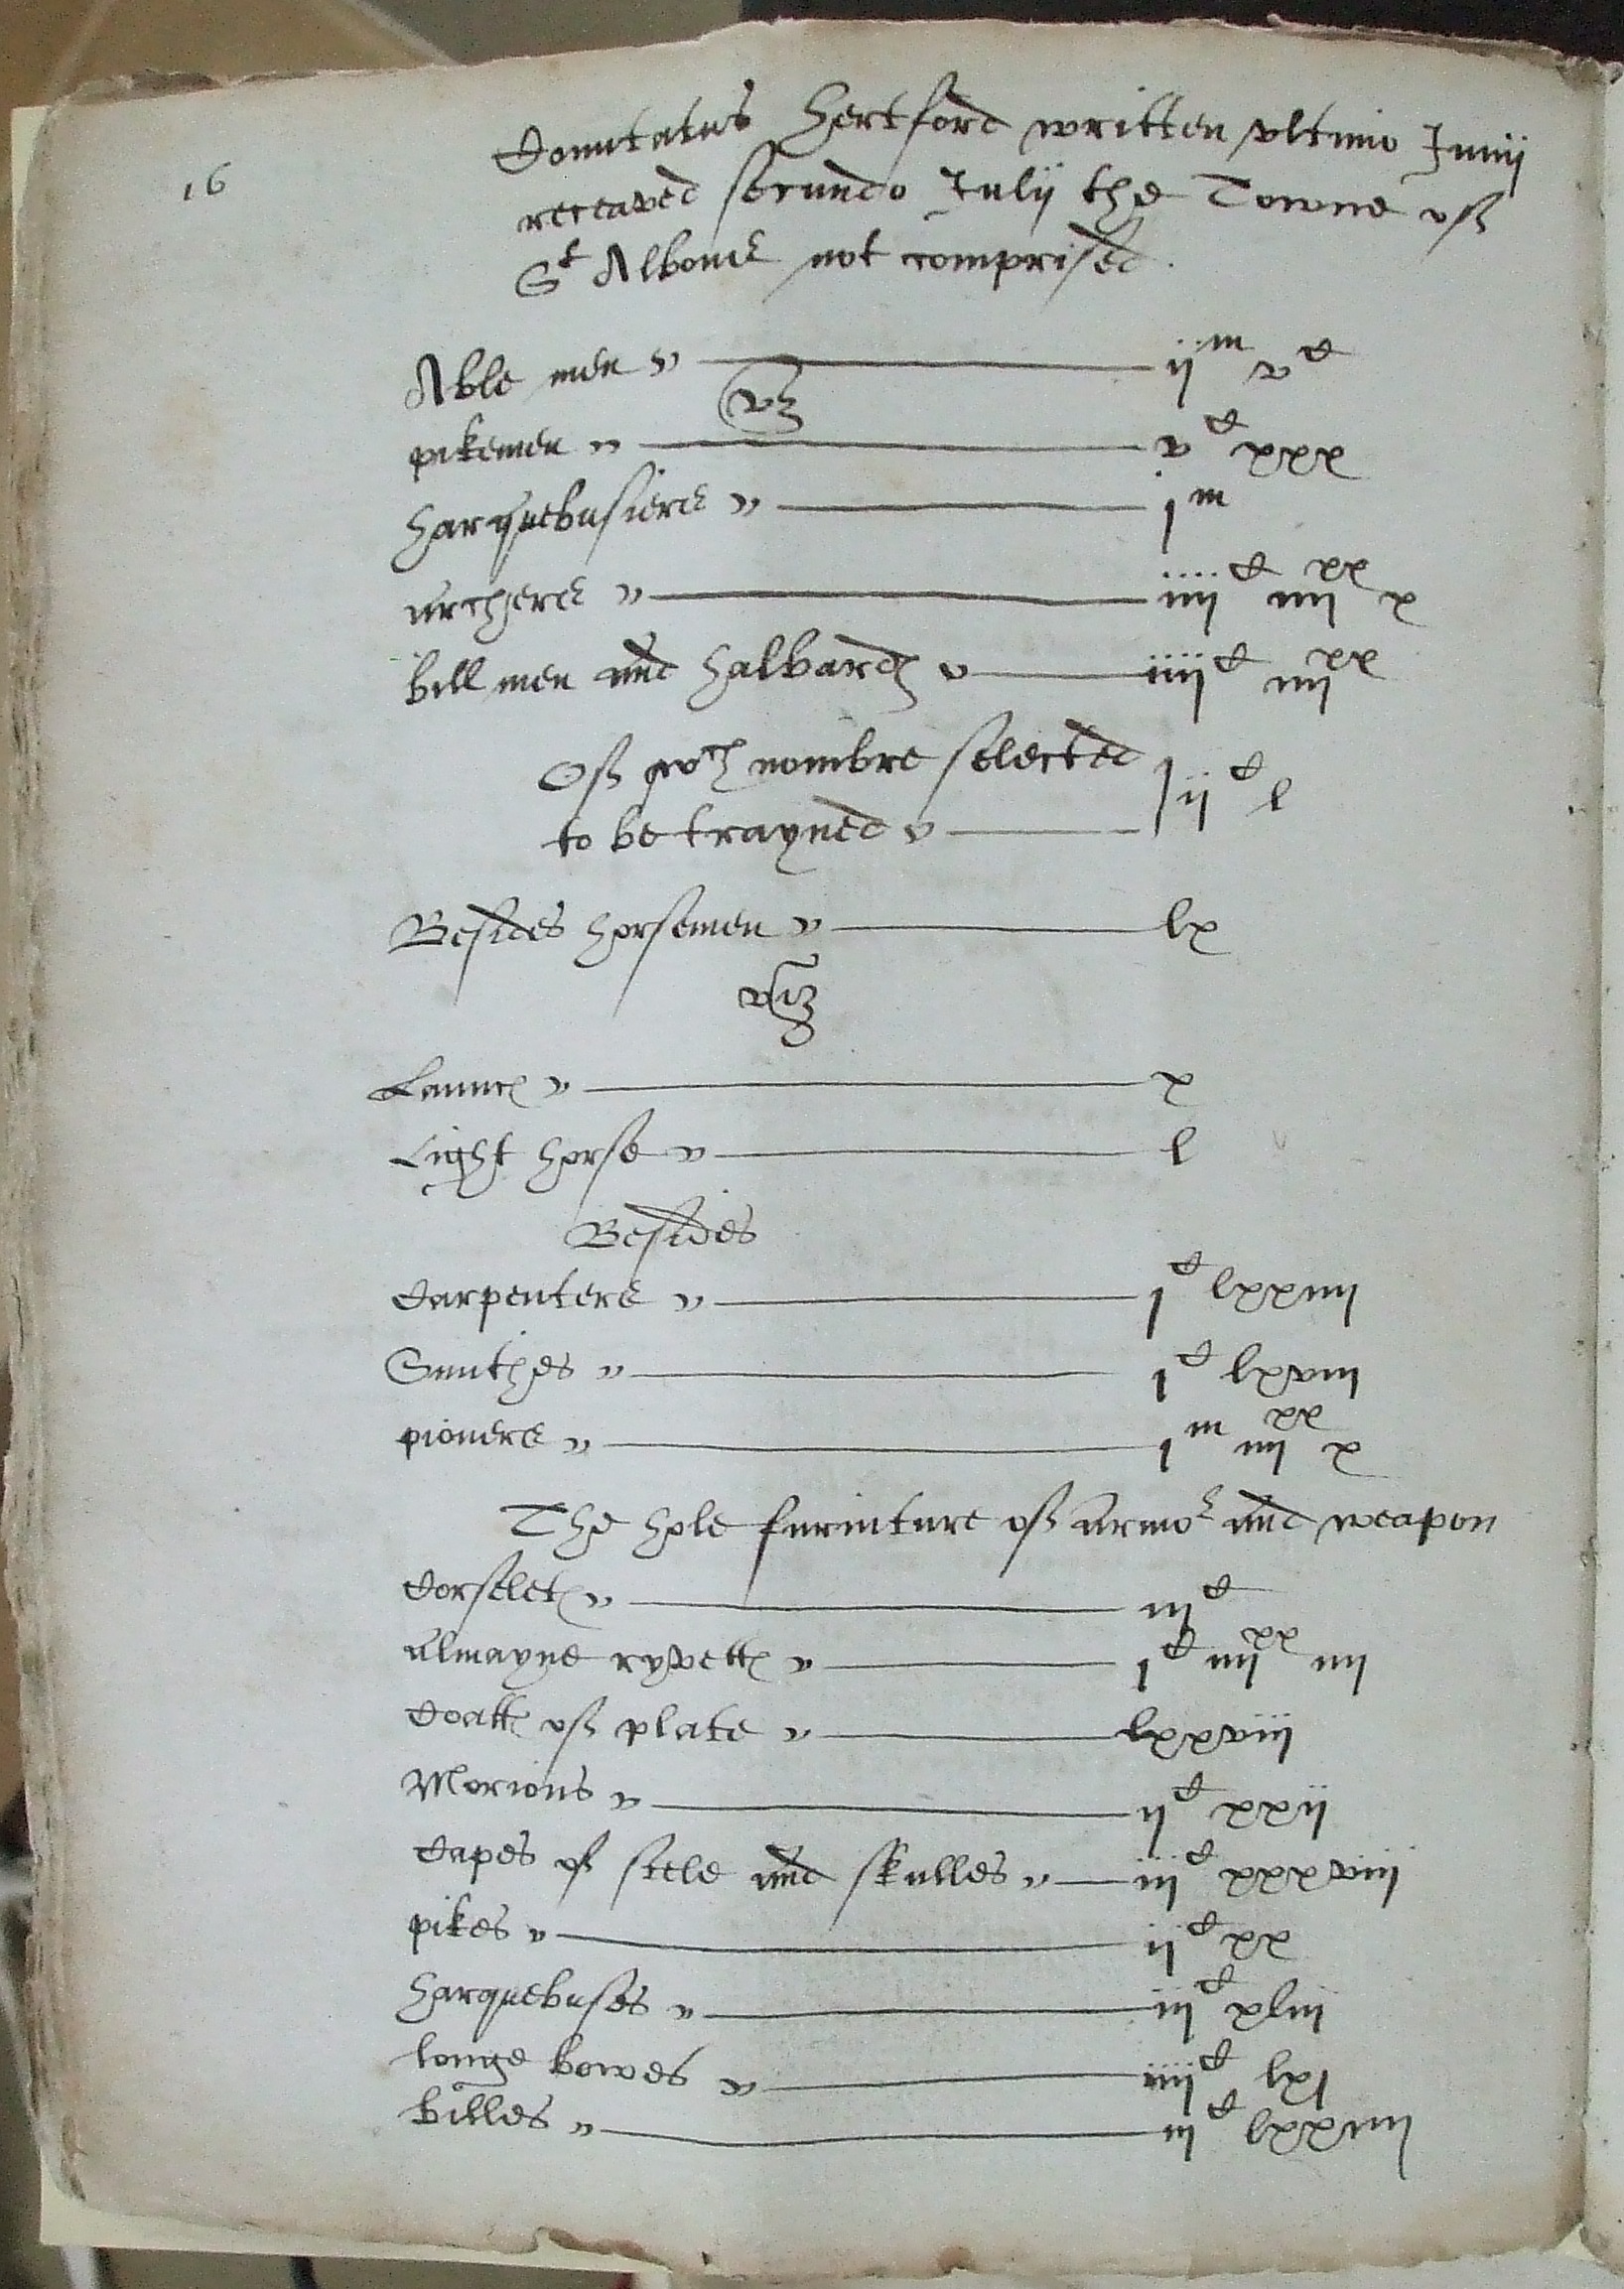 16
Comitatus Hertford written ultimo Junij
receaved secundo Julij the Towne off
St Albones not comprised.
Able men ij^m v^c
viz
pikemen v^c xxx
harquebusieres j^m
archeres iiij^c iiij^xx x
bill men and halbardes iiij^c iiij^xx
Off wch nombre selected
to be trayned ij^c l
Besides horsemen lx
viz
Launces x
Light horse l
Besides
Carpenteres j^c lxxiiij
Smithes j^c lxviij
pioneres j^m iiij^xx x
The hole furniture off armor and weapon
Corseletes iij^c
Almayne ryvettes j^c iiij^xx iiij
Coattes off plate lxxviij
Morions ij^c xxij
Capes off stele and skulles iij^c xxxviij
pikes ij^c xx
harquebuses iij^c xliij
longe bowes iiij^c lxj
billes iij^c lxxiiij